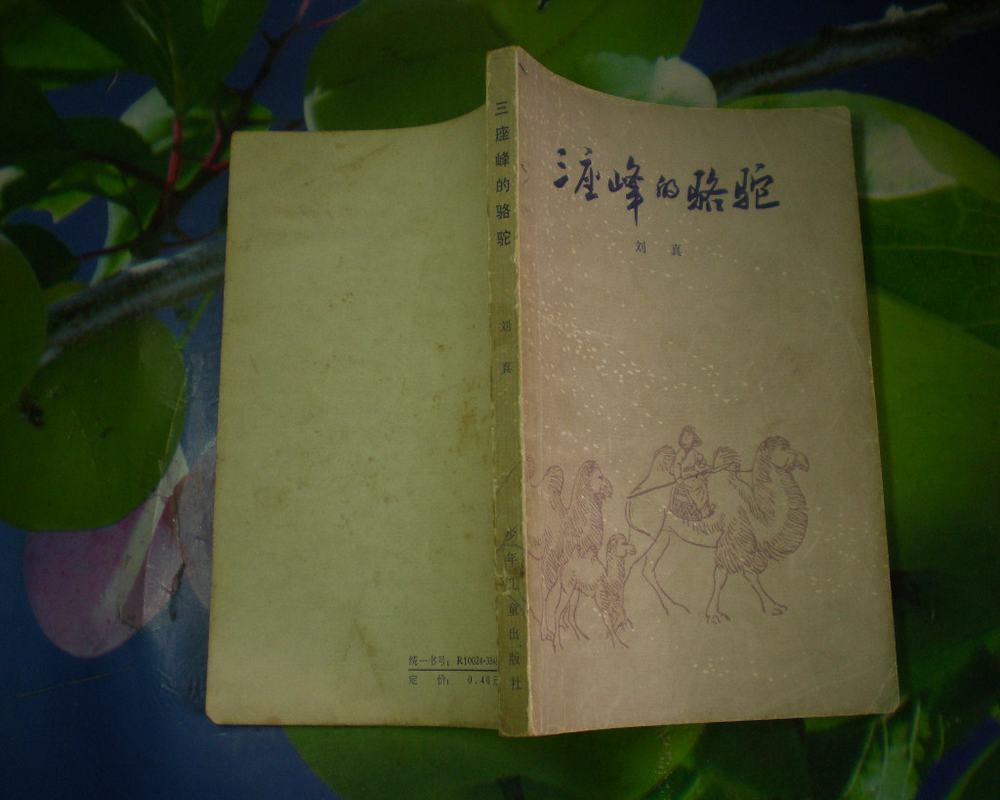 三座峰的骆驼
刘真
三座峰的骆驼
刘真
少年儿童出版社
统一书号：R10024·
定价：0.40元